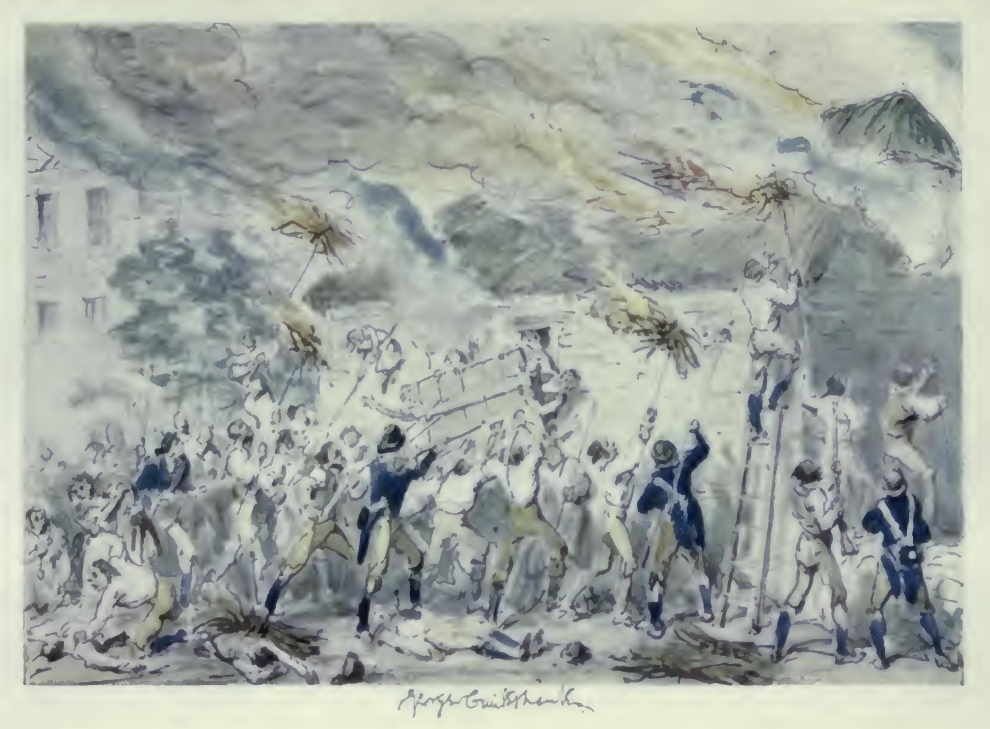 George Cruikshank